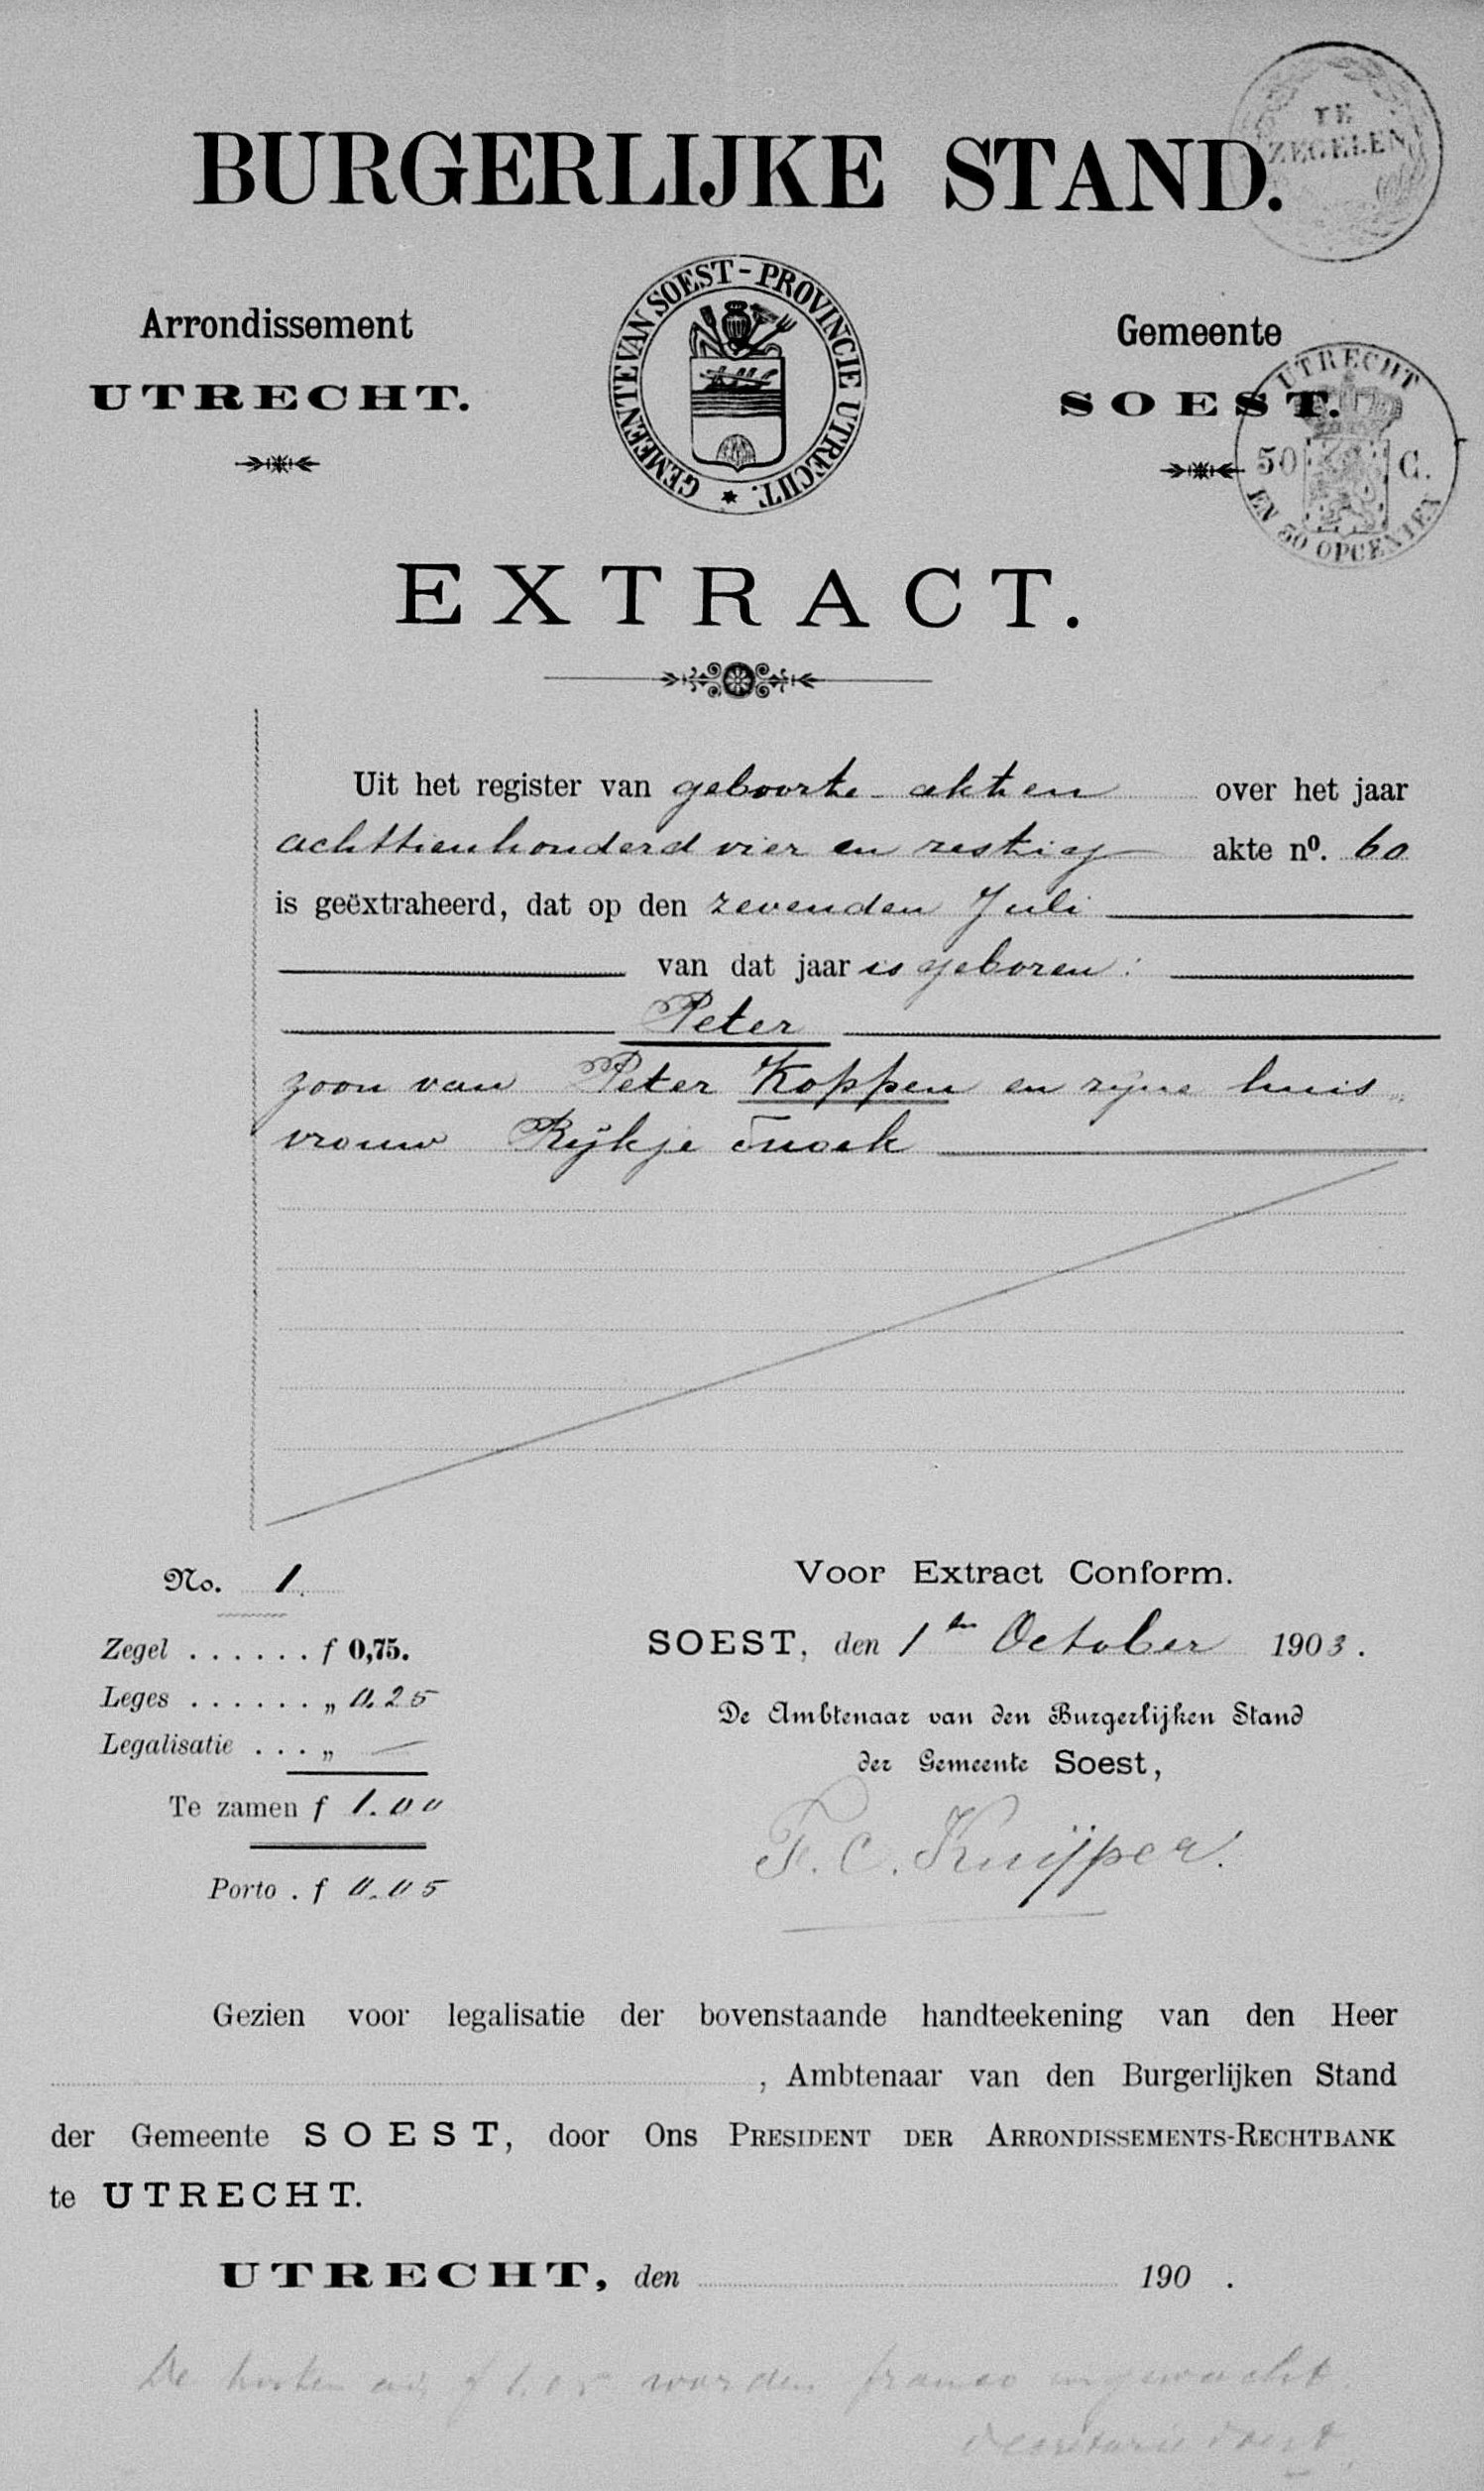 TE
ZEGELEN
BURGERLIJKE STAND.
Arrondissement
UTRECHT.
GEMEENTE VAN SOEST - PROVINCIE UTRECHT.
Gemeente
SOEST.
UTRECHT
50 C.
EN 50 OPCENTEN
EXTRACT.
Uit het register van geboorte-akten over het jaar
achttienhonderd vier en zestig akte nº. 60
is geëxtraheerd, dat op den zevenden Juli
van dat jaar is geboren:
Peter
zoon van Peter Koppen en zijne huis
vrouw Rijkje
No. 1.
Zegel . . . . . . f 0,75.
Leges . . . . . . „ 0.25
Legalisatie . . . „ —
Te zamen f 1.00
Porto . f 0.05
Voor Extract Conform.
SOEST, den 1en October 1903.
De Ambtenaar van den Burgerlijken Stand
der Gemeente Soest,
F. C. Kuijper.
Gezien voor legalisatie der bovenstaande handteekening van den Heer
, Ambtenaar van den Burgerlijken Stand
der Gemeente SOEST, door Ons PRESIDENT DER ARRONDISSEMENTS-RECHTBANK
te UTRECHT.
UTRECHT, den 190 .
De kosten ad f 1.05 worden franco ingewacht.